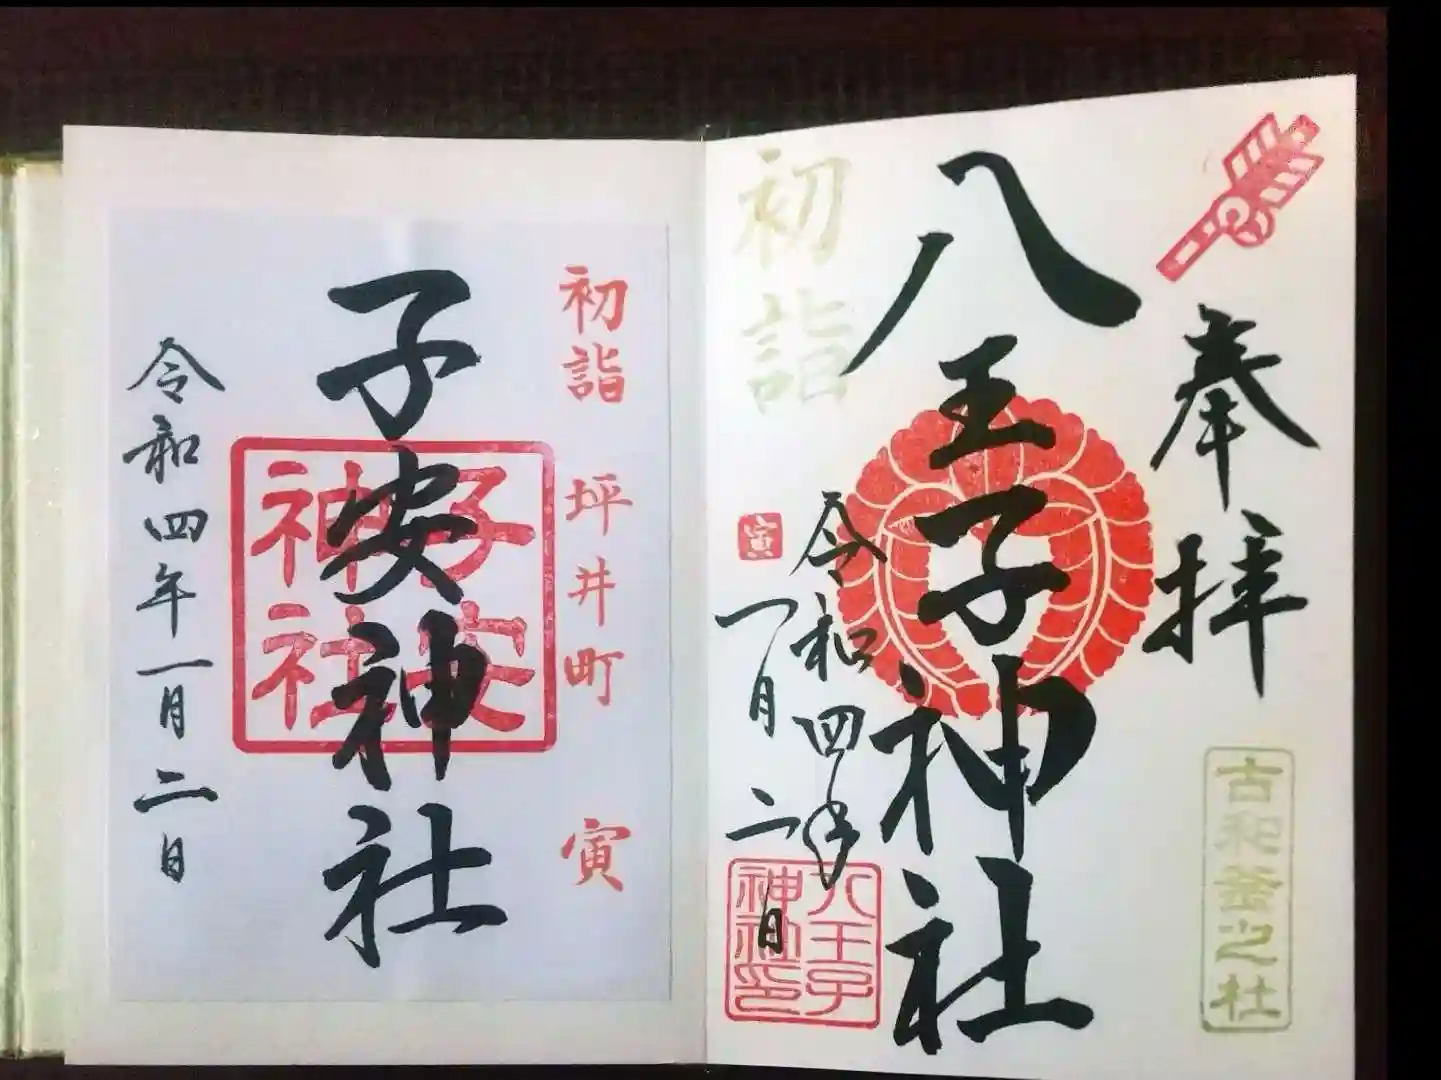 奉拝
古和釜之社
八王子神社
初詣
寅
令和四年
一月二日
八王子
神社印
初詣 坪井町 寅
子安神社
子安
神社
令和四年一月二日